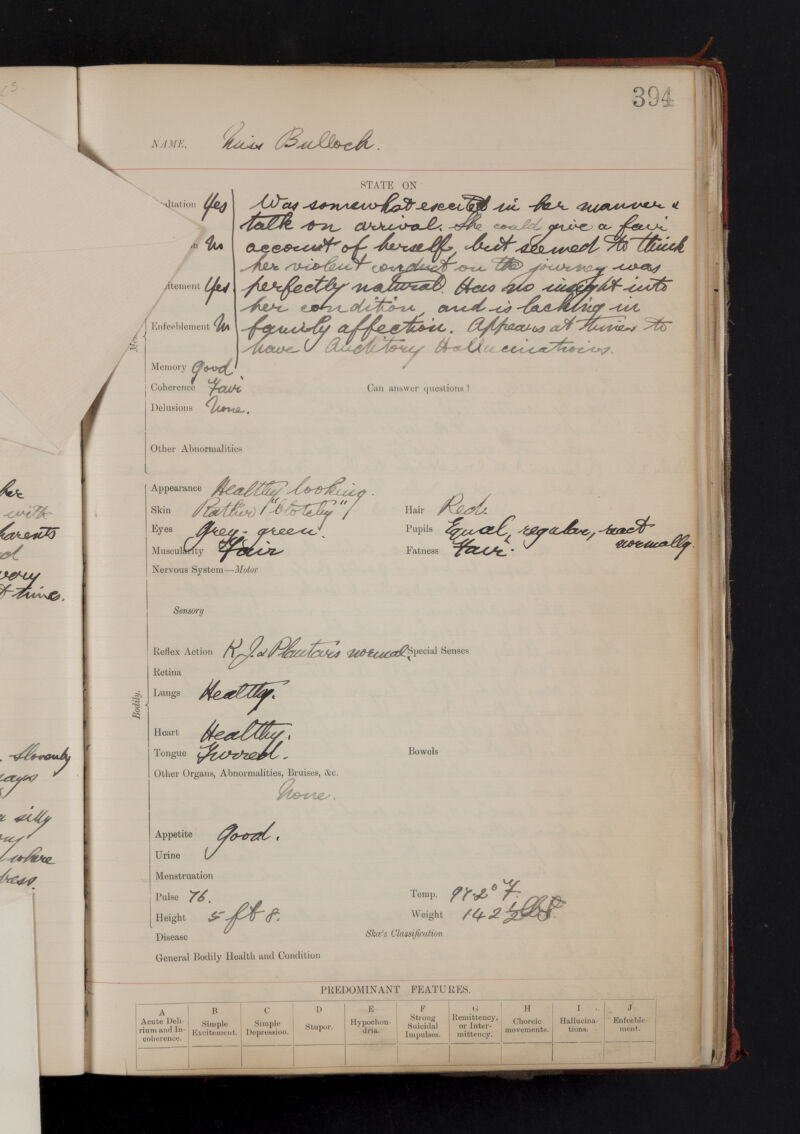 394
NAME. Miss Bullock.
STATE ON
ltation Yes Was somewhat excited in her manner &
talk on arrival. She could give a fair
account of herself, but seemed to think
her violent conduct on the journey was
itement Yes. perfectly natural. Has no insight into
her condition, and is lacking in
Enfeeblement family affection. Appears at times to
have Auditory Hallucinations.
Memory Good
Coherence Fair Can answer questions?
Delusions None.
Other Abnormalities
Appearance Healthy looking.
Skin Rather "blotchy" Hair Red.
Eyes Grey-green. Pupils Equal, regular, react normally.
Muscularity Fair Fatness Fair.
Nervous System—Motor
Sensory
Reflex Action K.J. & Plantars normal. Special Senses
Retina
Lungs Healthy.
Heart Healthy.
Tongue Furred. Bowels
Other Organs, Abnormalities, Bruises, &c.
None.
Appetite Good.
Urine
Menstruation
Pulse 76. Temp. 97.2° F.
Height 5 ft 8. Weight 142½ lbs.
Disease Skæ's Classification
General Bodily Health and Condition
Bodily.
PREDOMINANT FEATURES.
A B C D E F G H I J
Acute Delirium and Incoherence. Simple Excitement. Simple Depression. Stupor. Hypochondria. Strong Suicidal Impulses. Remittency, or Intermittency. Choreic movements. Hallucinations. Enfeeblement.
her
with
parents
very
time.
slovenly
silly
where